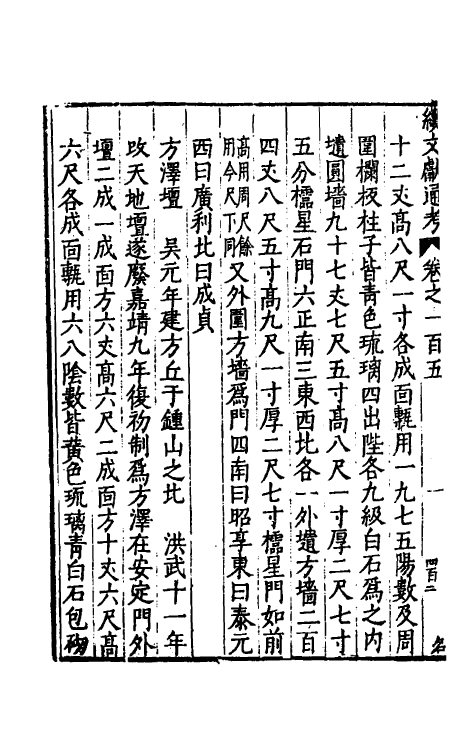 續文獻通考 卷之一百五 一
十二丈高八尺一寸各成面甎用一九七五陽數及周
圍欄板柱子皆青色琉璃四出陛各九級白石爲之内
壝圓墻九十七丈七尺五寸高八尺一寸厚二尺七寸
五分櫺星石門六正南三東西北各一外壝方墻二百
四丈八尺五寸高九尺一寸厚二尺七寸櫺星門如前
高用周尺餘
用今尺下同
又外圍方墻爲門四南曰昭享東曰泰元
西曰廣利北曰成貞
方澤壇 吴元年建方丘于鍾山之北 洪武十一年
改天地壇遂廢嘉靖九年復初制爲方澤在安定門外
壇二成一成面方六丈高六尺二成面方十丈六尺高
六尺各成面甎用六八陰數皆黄色琉璃青白石包砌